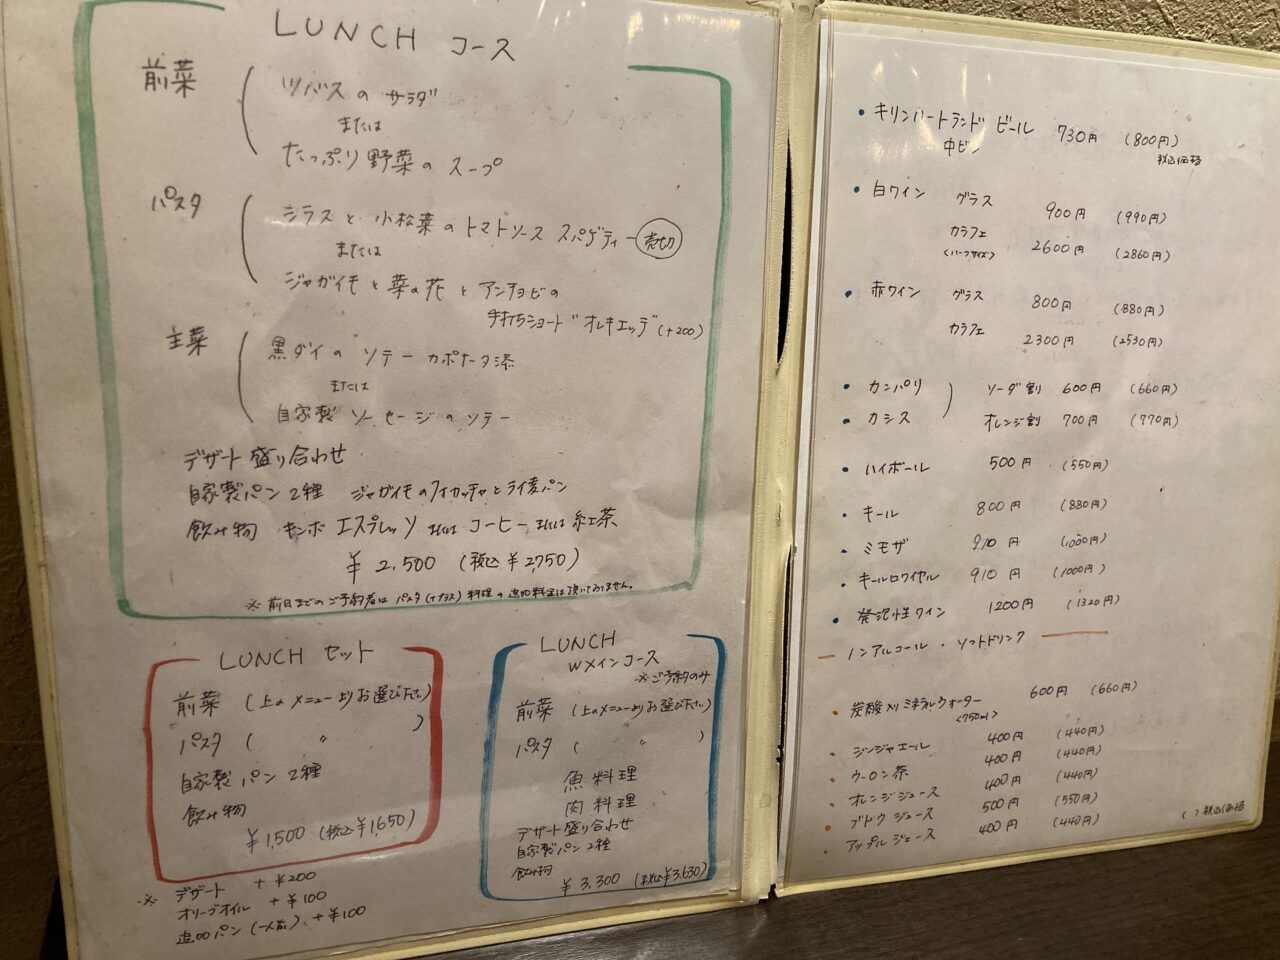 LUNCH コース
前菜
ツバスの サラダ
または
たっぷり野菜の スープ
パスタ
シラスと 小松菜のトマトソース スパゲティー 売切
または
ジャガイモと 菜の花と アンチョビの
手打ちショート゛オレキエッテ゛(+200)
主菜
黒ダイの ソテー カポナータ添
または
自家製 ソーセージのソテー
デザート盛り合わせ
自家製パン2種 ジャガイモのフォカッチャとライ麦パン
飲み物 キンボ エスプレッソ または コーヒー または 紅茶
¥2,500 (税込¥2,750)
※前日までのご予約者は パスタ(+プラス)料理の追加料金は頂いておりません。
LUNCH セット
前菜 (上のメニューよりお選び下さい)
パスタ ( 〃 )
自家製パン2種
飲み物
¥1,500 (税込¥1,650)
※ デザート +¥200
オリーブオイル +¥100
追加パン(一人前) +¥100
LUNCH
Wメインコース
※ご予約のみ
前菜 (上のメニューよりお選び下さい)
パスタ ( 〃 )
魚料理
肉料理
デザート盛り合わせ
自家製パン2種
飲み物
¥3,300 (税込¥3,630)
・キリンハートランド ビール 730円 (800円)
中ビン 税込価格
・白ワイン グラス 900円 (990円)
カラフェ 2600円 (2860円)
<ハーフサイズ>
・赤ワイン グラス 800円 (880円)
カラフェ 2300円 (2530円)
・カンパリ ソーダ割 600円 (660円)
・カシス オレンジ割 700円 (770円)
・ハイボール 500円 (550円)
・キール 800円 (880円)
・ミモザ 910円 (1000円)
・キールロワイヤル 910円 (1000円)
・発泡性ワイン 1200円 (1320円)
ノンアルコール・ソフトドリンク
・炭酸入りミネラルウォーター 600円 (660円)
<750ml>
・ジンジャエール 400円 (440円)
・ウーロン茶 400円 (440円)
・オレンジジュース 400円 (440円)
・ブドウジュース 500円 (550円)
・アップルジュース 400円 (440円)
( )税込価格